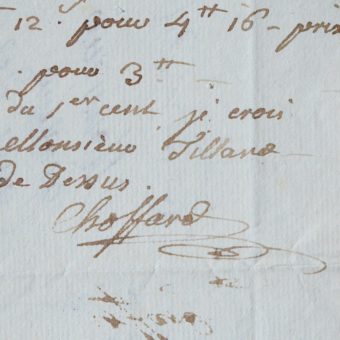 12. pour 4tt 16 - prix
. pour 3tt
du 1er cent je crois
Monsieur Tillard
de Dessus.
Choffard